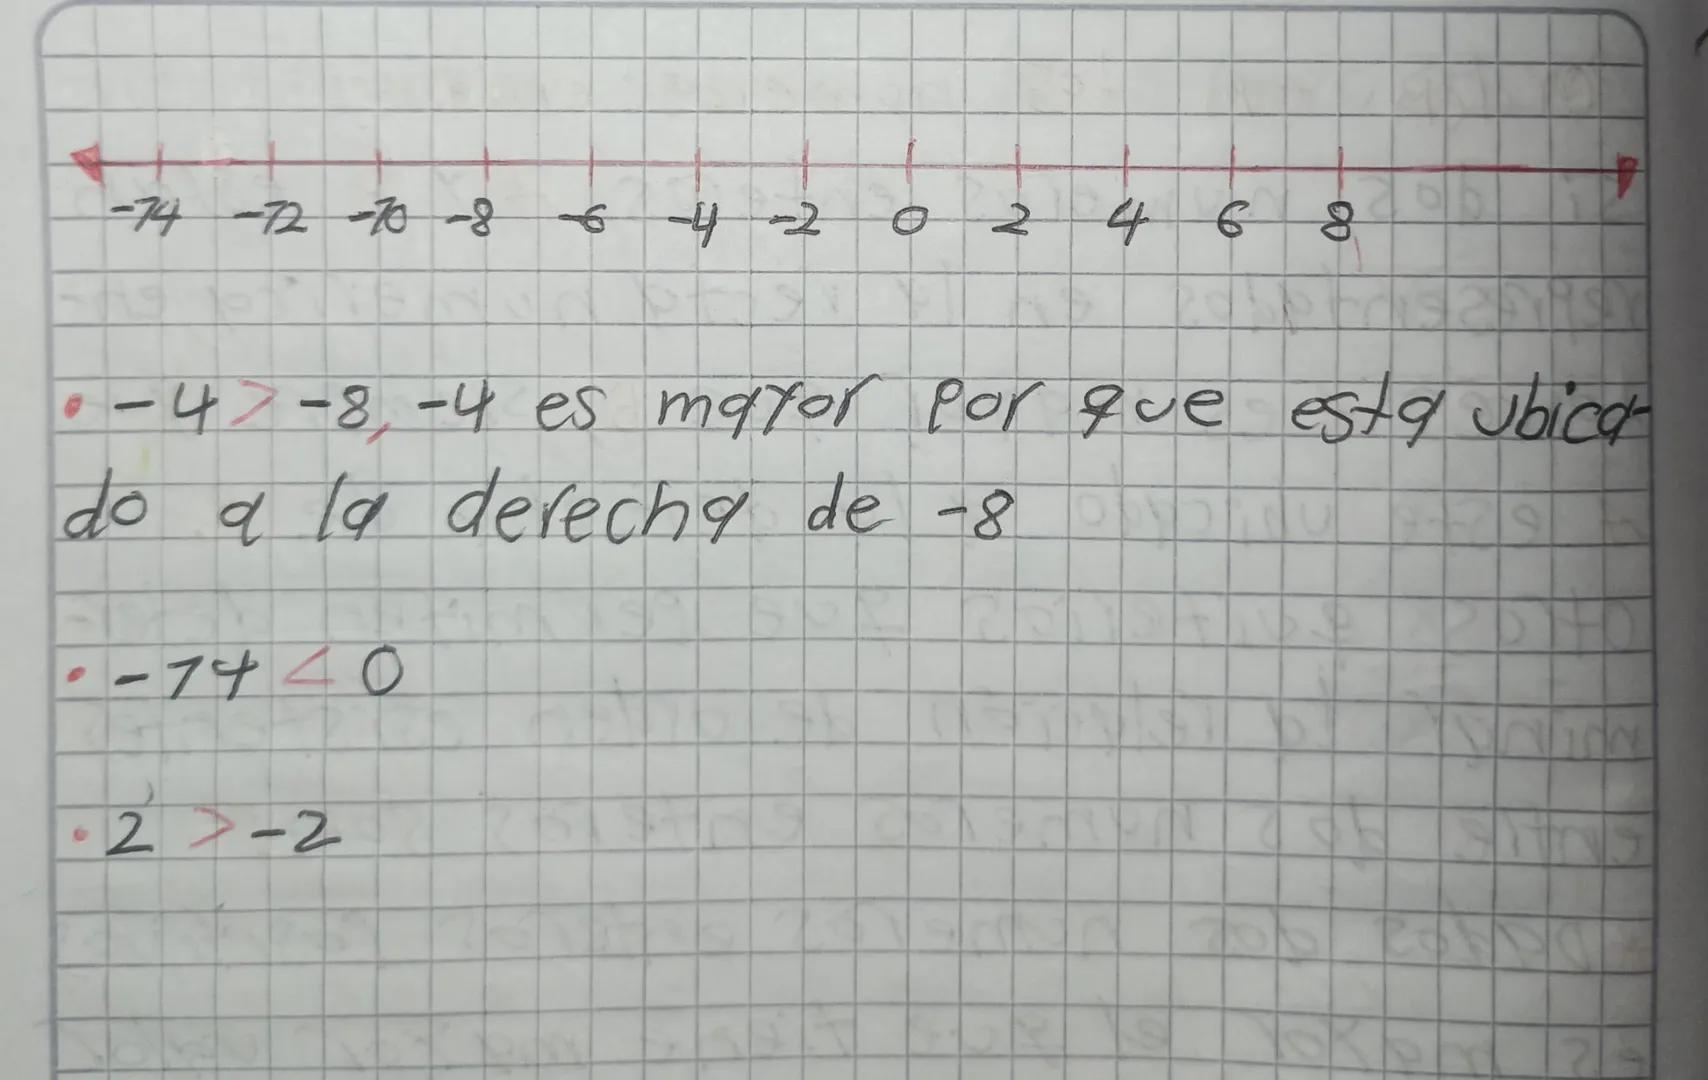 -14 -12 -10 -8 -6 -4 -2 0 2 4 6 8
• -4 > -8, -4 es mayor por que esta ubica-
do a la derecha de -8
• -14 < 0
• 2 > -2